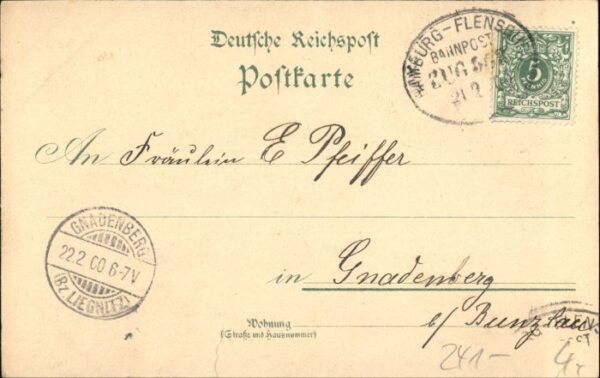 Deutsche Reichspost
Postkarte
HAMBURG-FLENSBURG
BAHNPOST
ZUG
21 2
5
REICHSPOST
An Fräulein E Pfeiffer
GNADENBERG
22.2 00 6-7V
(Bz. LIEGNITZ)
in Gnadenberg
b/ Bunzlau
Wohnung
(Straße und Hausnummer)
FLENS
241-